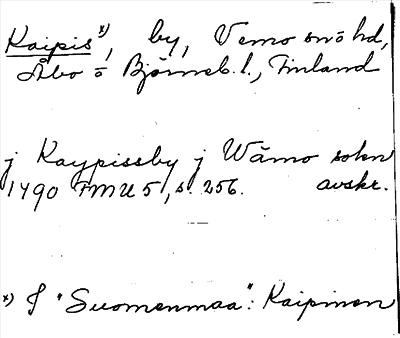 Kaipis x), by, Vemo sn o hd,
Åbo o Björneb. l., Finland
j Kaypissby j Wämo sokn
1490 FMU 5, s. 256. avskr.
x) I "Suomenmaa": Kaipinen